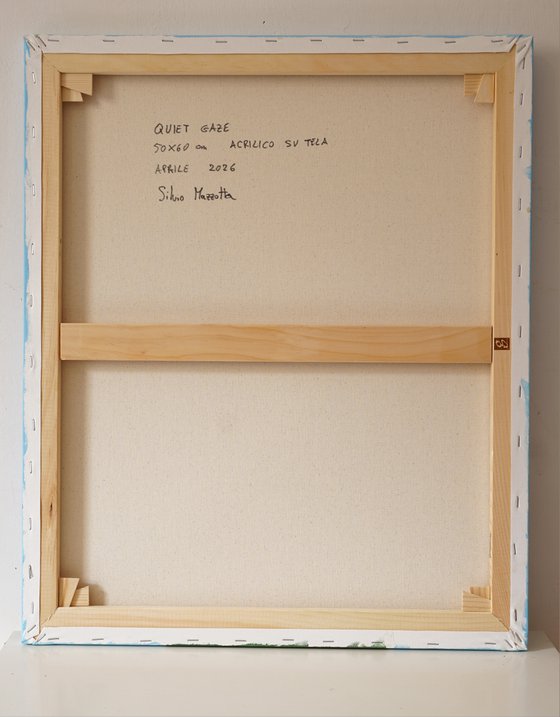 QUIET GAZE
50X60 cm ACRILICO SU TELA
APRILE 2026
Silvio Mazzotta